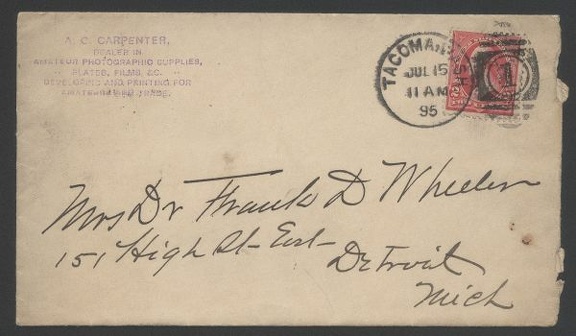 A. C. CARPENTER,
DEALER IN
AMATEUR PHOTOGRAPHIC SUPPLIES,
PLATES, FILMS, &C.
DEVELOPING AND PRINTING FOR
TACOMA
JUL 15
11 AM
95
1
Mrs Dr Frank D Wheeler
151 High St- East-
Detroit
Mich